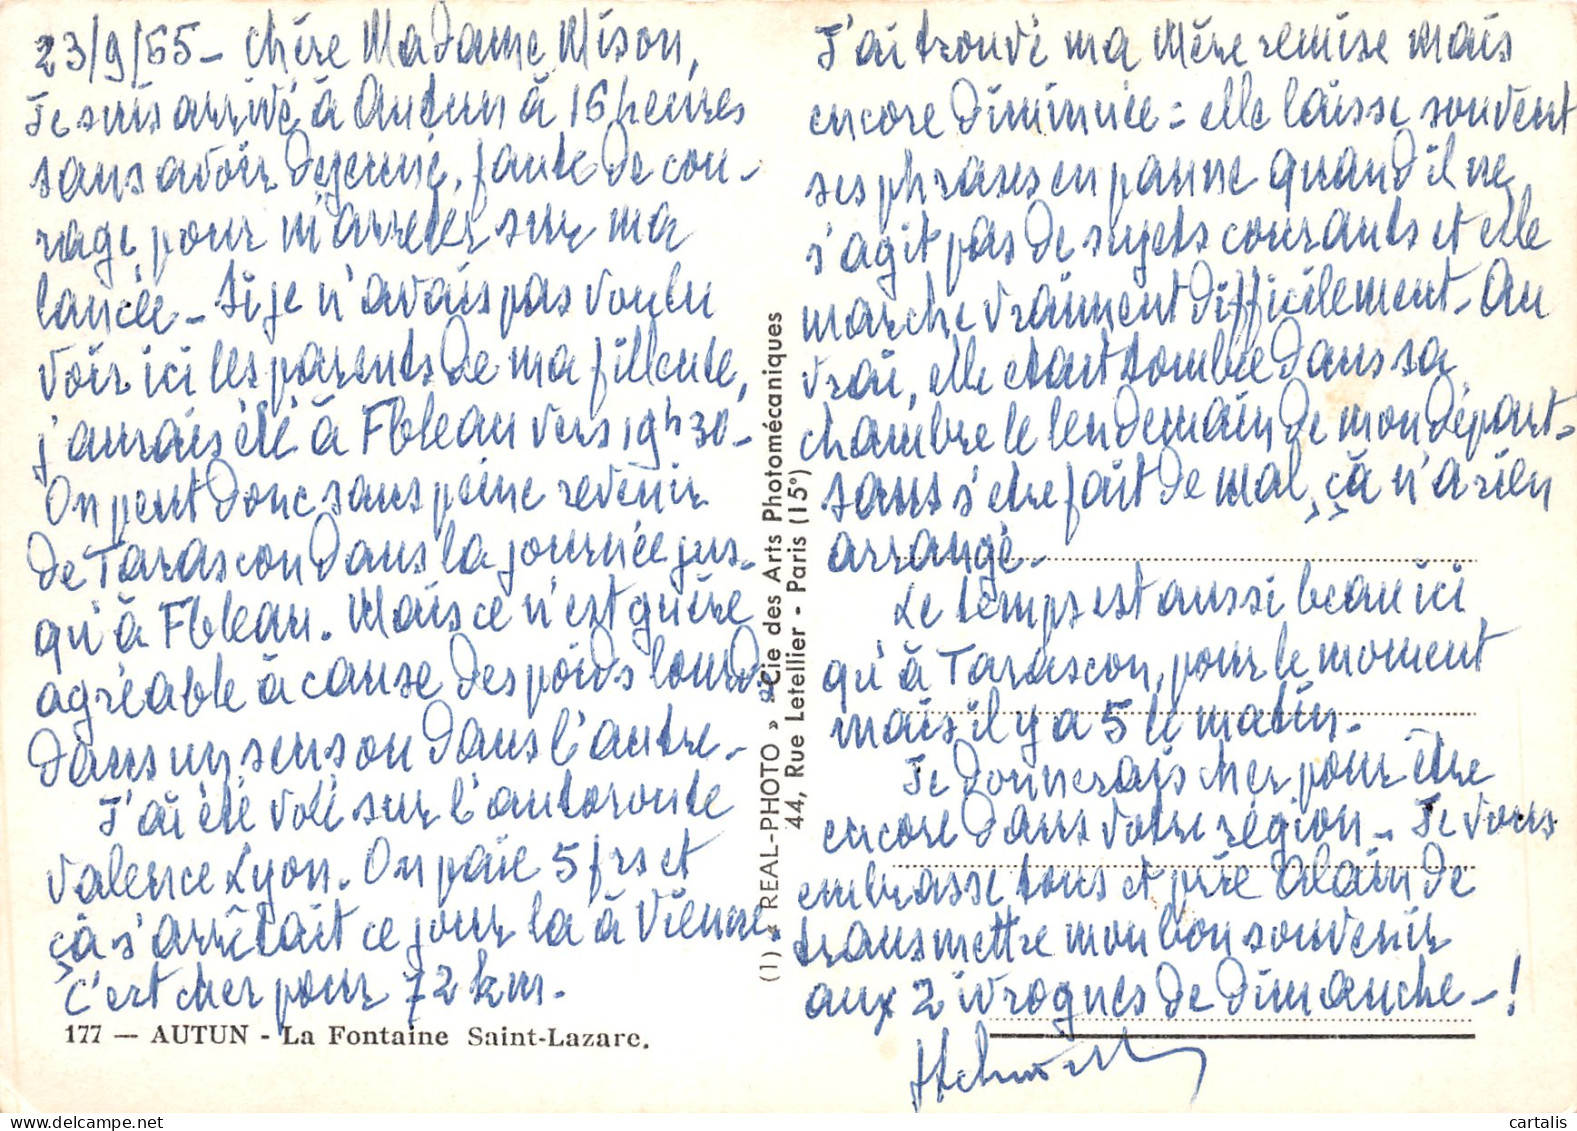 23/9/65 - Chère Madame Mison,
Je suis arrivé à Autun à 16 heures
sans avoir dejeuné, faute de cou-
rage pour m'arrêter sur ma
lancée - Si je n'avais pas voulu
voir ici les parents de ma filleule,
j'aurais été à Fbleau vers 19h30 -
On peut donc sans peine revenir
de Tarascon dans la journée jus-
qu'à Fbleau. Mais ce n'est guère
agréable à cause des poids lourds
dans un sens ou dans l'autre -
J'ai été volé sur l'autoroute
Valence Lyon. On paie 5 frs et
çà s'arrêtait ce jour là à Vienne.
C'est cher pour 72 km.
177 — AUTUN - La Fontaine Saint-Lazare.
(1) « REAL-PHOTO » Cie des Arts Photomécaniques
44, Rue Letellier - Paris (15°)
J'ai trouvé ma Mère remise mais
encore diminuée = elle laisse souvent
ses phrases en panne quand il ne
s'agit pas de sujets courants et elle
marche vraiment difficilement - Au
vrai, elle était tombée dans sa
chambre le lendemain de mon départ -
sans s'être fait de mal, çà n'a rien
arrangé -
Le temps est aussi beau ici
qu'à Tarascon, pour le moment
mais il y a 5 le matin -
Je donnerais cher pour être
encore dans votre région - Je vous
embrasse tous et prie Alain de
transmettre mon bon souvenir
aux 2 ivrognes de Dimanche - !
cartalis